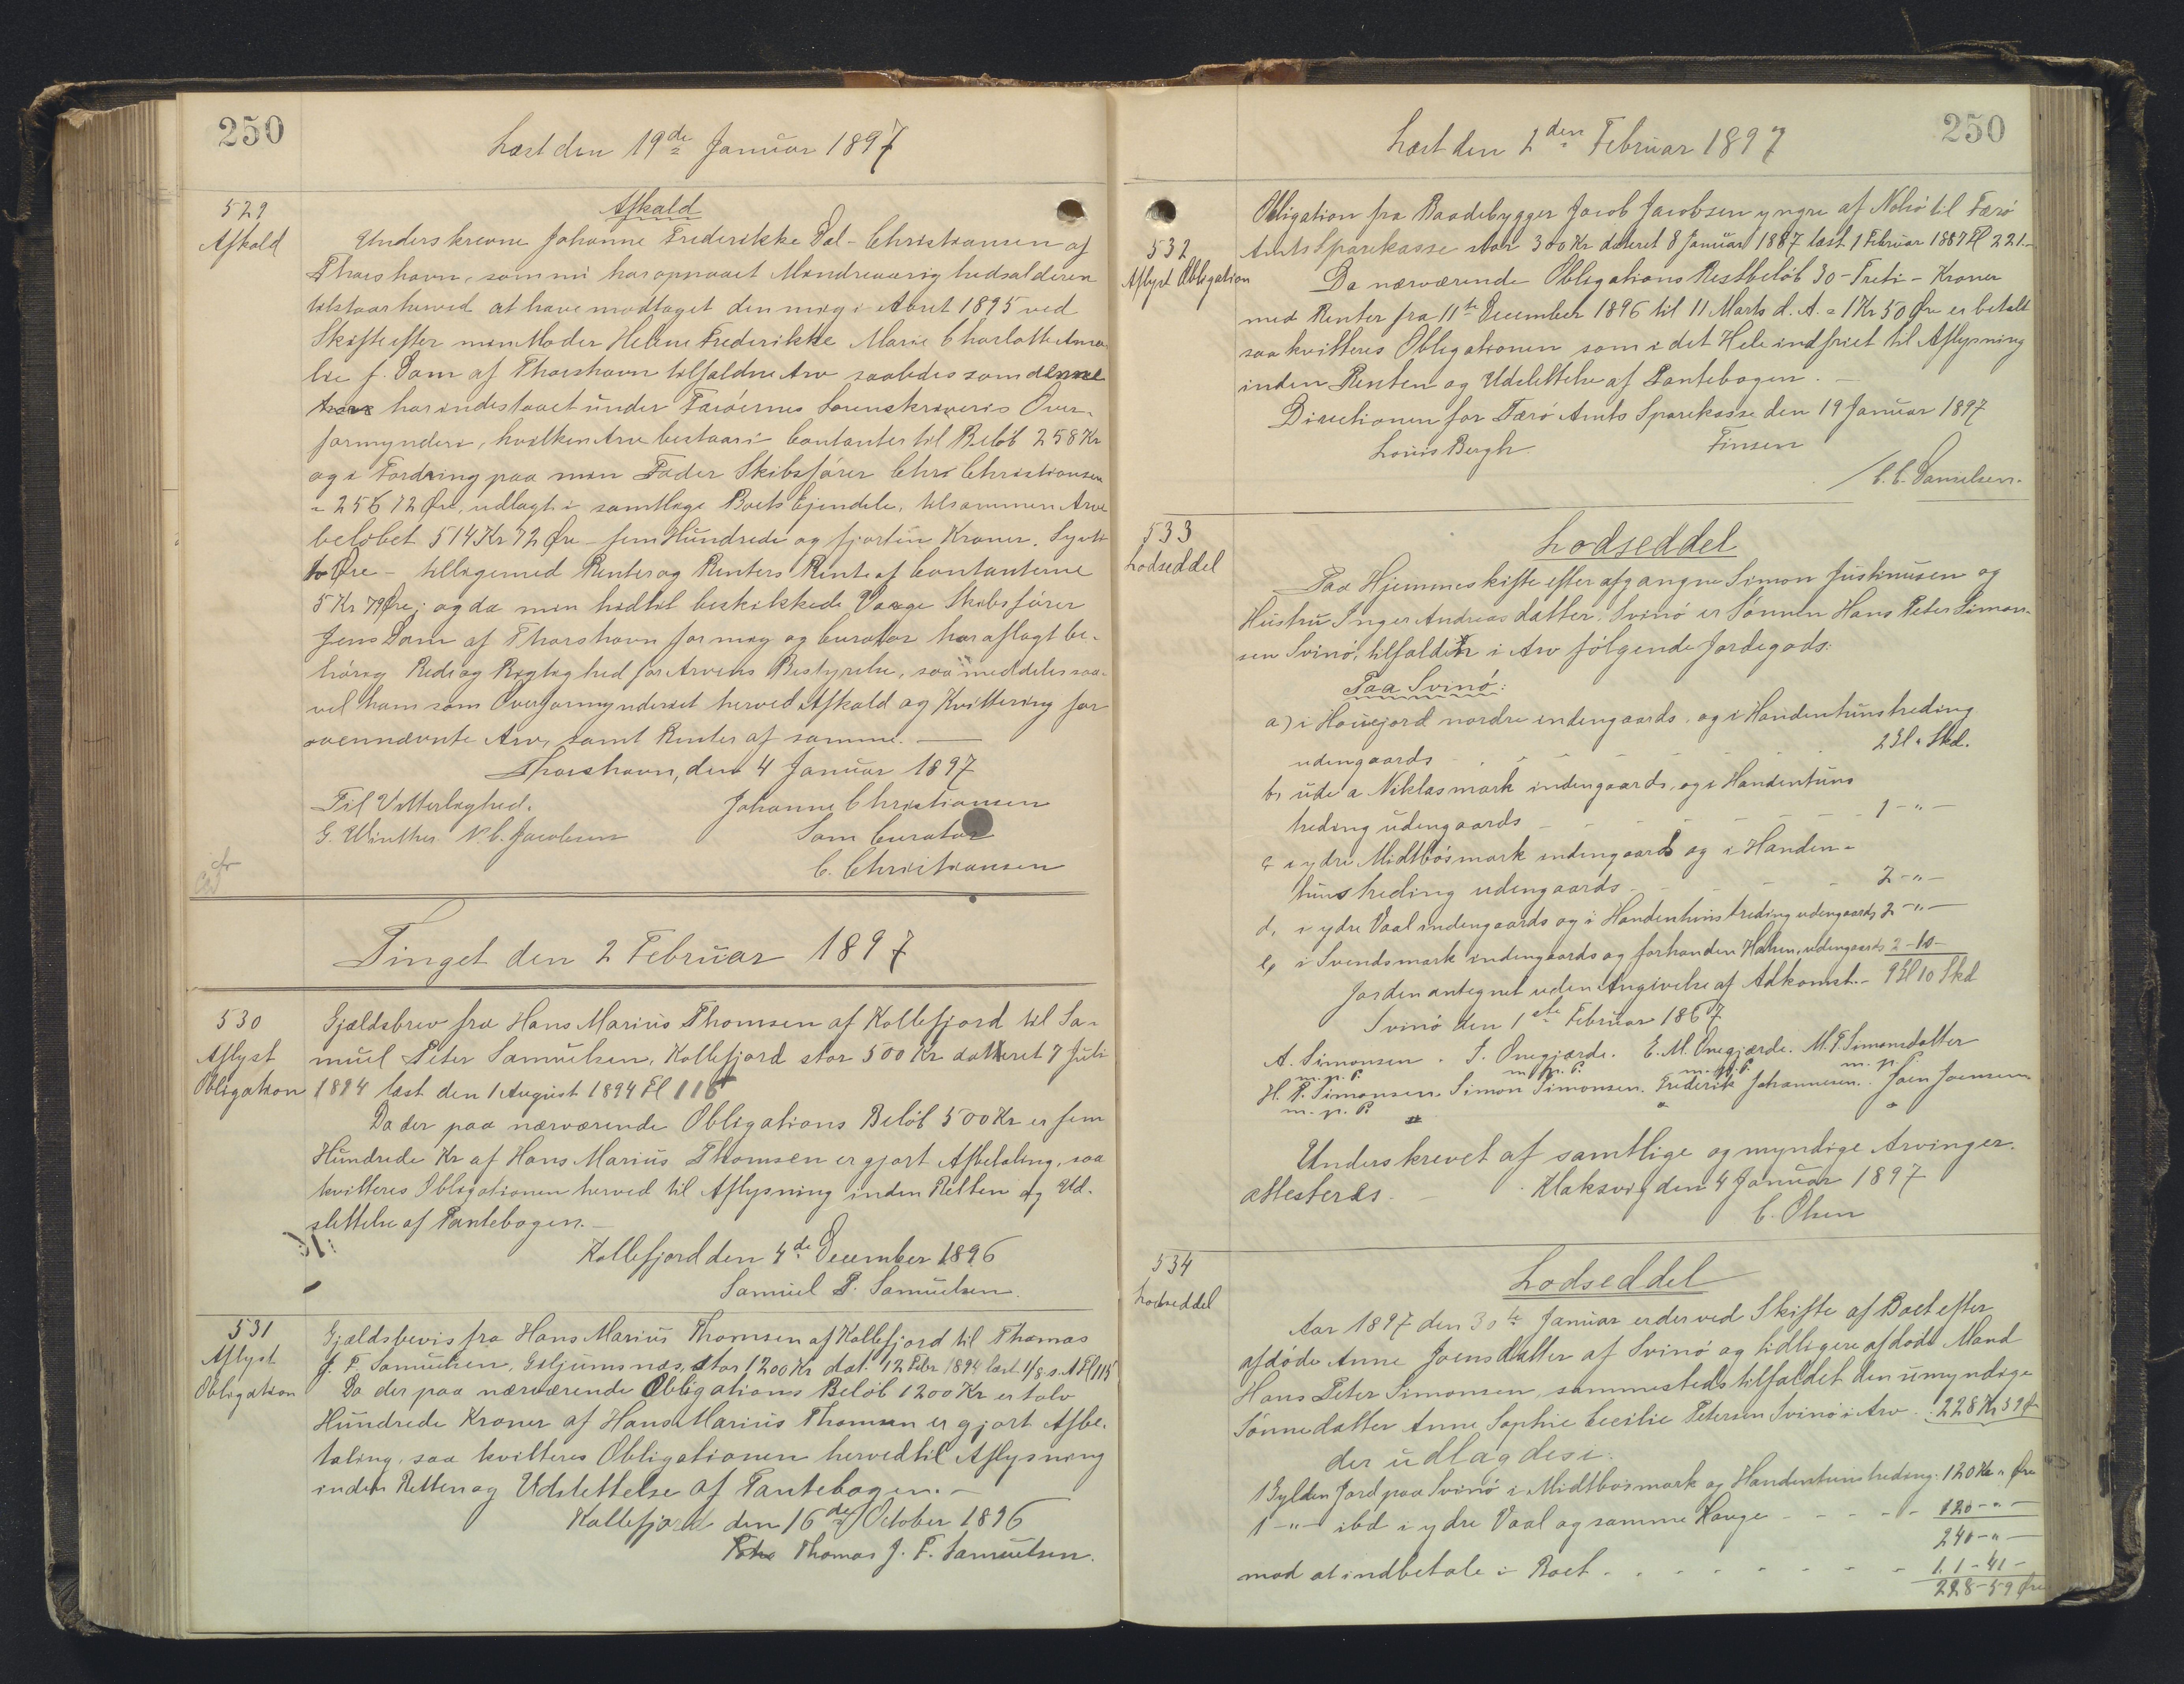 250
Læst den 19de Januar 1897
529
Afkald
Afkald
Underskrevne Johanne Frederikke Dal-Christiansen af
Thorshavn, som nu har opnaaet Mindreaarighedsalderen
tilstaar herved at have modtaget den mig i Aaret 1895 ved
Skifte efter min Moder Helene Frederikke Marie Charlotte Ama-
lie f. Dam af Thorshavn tilfaldne Arv saaledes som denne
har indestaaet under Færöernes Sorenskriveris Over-
formynderi, hvilken Arv bestaar i Contanter til Belöb 258 Kr
og i Fordring paa min Fader Skibsförer Chrs Christiansen
= 256 72 Øre, udlagt i samtlige Boets Ejendele, tilsammen Arve
belöbet 514 Kr 72 Øre - fem Hundrede og fjorten Kroner, Syvti
to Øre - tilligemed Renter og Renters Rente af Contanterne
5 Kr 79 Øre; og da min hidtil beskikkede Værge Skibsförer
Jens Dam af Thorshavn for mig og Curator har aflagt be-
hörig Rede og Rigtighed for Arvens Bestyrelse, saa meddeles saa-
vel ham som Overformynderiet herved Afkald og Kvittering for
ovennævnte Arv, samt Renter af samme.
Thorshavn, den 4 Januar 1897
Til Vitterlighed. Johanne Christiansen
G. Winther N. C. Jacobsen Som Curator
C. Christiansen
Tinget den 2 Februar 1897
530
Aflyst
Obligation
Gjældsbrev fra Hans Marius Thomsen af Kollefjord til Sa-
muel Peter Samuelsen, Kollefjord stor 500 Kr dateret 7 Juli
1894 læst den 1 August 1894 Fl 115
Da der paa nærværende Obligations Belöb 500 Kr er fem
Hundrede Kr af Hans Marius Thomsen er gjort Afbetaling, saa
kvitteres Obligationen herved til Aflysning inden Retten og Ud-
slettelse af Pantebogen.-
Kollefjord den 4de December 1896
Samuel P. Samuelsen.
531
Aflyst
Obligation
Gjældsbevis fra Hans Marius Thomsen af Kollefjord til Thomas
J. F. Samuelsen, Gsljumsnæs, stor 1200 Kr dat. 12 Febr 1894 læst 1/8 s. A Fl 115
Da der paa nærværende Obligations Belöb 1200 Kr er tolv
Hundrede Kroner af Hans Marius Thomsen er gjort Afbe-
taling, saa kvitteres Obligationen herved til Aflysning
inden Retten og Udslettelse af Pantebogen.-
Kollefjord den 16de October 1896
Thomas J. F. Samuelsen.
250
Læst den 2den Februar 1897
532
Aflyst Obligation
Obligation fra Baadebygger Jacob Jacobsen yngre af Nolsö til Færö
Amts Sparekasse stor 300 Kr dateret 8 Januar 1887 læst 1 Februar 1887 Fl 221.-
Da nærværende Obligations Restbelöb 30 - Treti - Kroner
med Renter fra 11te December 1896 til 11 Marts d. A. = 1 Kr 50 Øre er betalt
saa kvitteres Obligationen som i det Hele indfriet til Aflysning
inden Retten og Udslettelse af Pantebogen.-
Directionen for Færö Amts Sparekasse den 19 Januar 1897
Louis Bergh Finsen
/ C. C. Danielsen.
533
Lodseddel
Lodseddel
Paa Hjemmeskifte efter afgangne Simon Justinusen og
Hustru Inger Andreasdatter, Svinö er Sönnen Hans Peter Simon-
sen Svinö, tilfalden i Arv fölgende Jordegods:
Paa Svinö:
a) i Houejord nordre indengaards, og i Handentunstreding
udengaards - - - - - 2 Gl " Skd.
b, ude a Niklasmark indengaards, og i Handentuns
treding udengaards - - - - - 1 - " -
c, i ydre Midtbösmark indengaards og i Handen-
tunstreding udengaards - - - 2 - " -
d, i ydre Vaal indengaards og i Handentunstreding udengaards 2 - " -
e, i Svendsmark indengaards og forhanden Hálsen, udengaards 2 - 10 -
Jorden antegnet uden Angivelse af Adkomst.- 9 Gl 10 Skd
Svinö den 1ste Februar 1867
A. Simonsen. J. Önegjærde. E. M. Önegjærde. M. P. Simonsdatter
m. p. P. m. p. P. m. p. P. m. p. P.
H. P. Simonsen. Simon Simonsen. Frederik Johannesen. Joen Joensen
m. p. P. " " "
Underskrevet af samtlige og myndige Arvinger.
attesteres. - Klaksvig den 4 Januar 1897
C. Olsen
534
Lodseddel
Lodseddel
Aar 1897 den 30te Januar er der ved Skifte af Boet efter
afdöde Anne Joensdatter af Svinö og tidligere afdöde Mand
Hans Peter Simonsen, sammesteds tilfaldet den umyndige
Sönnedatter Anne Sophie Cecilie Petersen Svinö i Arv - 228 Kr 59 Ø
der udlagdes i:
1 Gylden Jord paa Svinö i Midtbösmark og Handentunstreding: 120 Kr " Øre
1 - " - ibd i ydre Vaal og samme Hauge - - - - 120 - " -
240 - " -
mod at indbetale i Boet - - - - - - 11 - 41 -
228 - 59 Øre